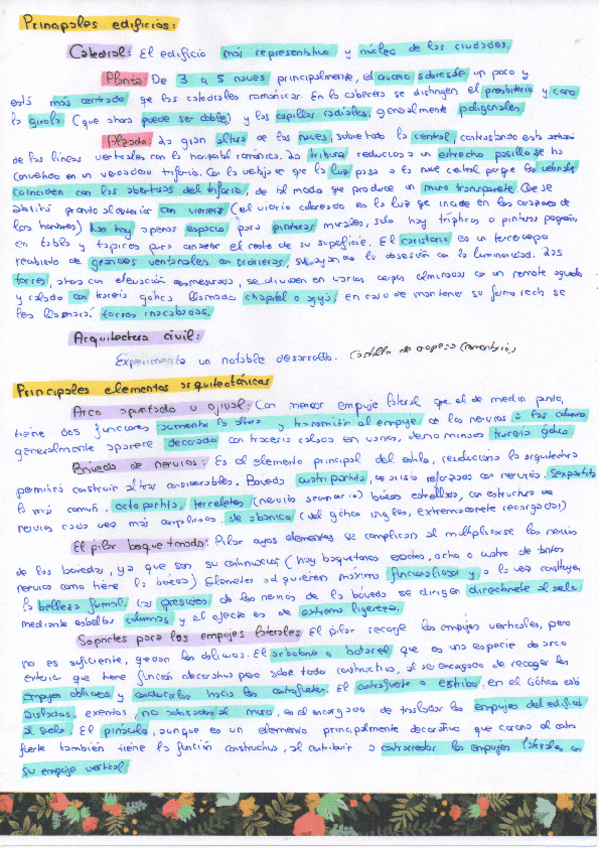 Principales edificios:
Catedral: El edificio más representativo y núcleo de las ciudades.
Planta: De 3 a 5 naves principalmente, el crucero sobresale un poco y
está más centrado que las catedrales románicas. En la cabecera se distinguen el presbiterio y como
la girola (que ahora puede ser doble) y las capillas radiales, generalmente poligonales.
Alzado: La gran altura de las naves, sobre todo la central, contrastando esta
de las líneas verticales con la horizontal románica. La tribuna reducida a un estrecho pasillo se ha
convertido en un verdadero triforio. Con la ventaja de que la luz pasa a la nave central porque las
coinciden con las aberturas del triforio, de tal modo que produce un muro transparente. Que se
abrirá pronto al exterior con vidrieras (el vidrio coloreado es la luz que incide en los corazones de
los hombres) No hay apenas espacio para pinturas murales, solo hay trípticos o pinturas pequeñas
en tabla y tapices para el resto de su superficie. El claristorio es un tercer cuerpo
recubierto de grandes ventanales con vidrieras, subrayando la obsesión con la luminosidad. Las
torres, ahora con elevación desmesurada, se dividen en varios cuerpos culminados con un remate agudo
y calado con tracería gótica llamado chapitel o aguja, en caso de mantener su forma recta se
les llamará torres inacabadas.
Arquitectura civil:
Experimenta un notable desarrollo. Castillo de
Principales elementos arquitectónicos
Arco apuntado u ojival: Con menor empuje lateral que el de medio punto,
tiene dos funciones aumenta la altura y transmitir el empuje de los nervios a las columnas
generalmente aparece decorado con tracería calada en vanos, denominada tracería gótica
Bóveda de nervios: Es el elemento principal del estilo, revoluciona la arquitectura
permitirá construir alturas considerables. Bóveda cuatripartita, de crucería reforzada con nervios. Sexpartita
la más común. octopartita, terceletes (nervio secundario) bóvedas estrelladas, con estructura de
nervios cada vez más complicada. de abanico (del gótico inglés, extremadamente recargadas)
El pilar baquetonado: Pilar cuyos elementos se complican al multiplicarse los nervios
de las bóvedas, ya que son su continuación (hay baquetones exactos, ocho o cuatro de tantos
nervios como tiene la bóveda) Elementos adquieren máxima funcionalidad y a la vez constituyen
la belleza formal. Las presiones de los nervios de la bóveda se dirigen directamente al suelo
mediante esbeltas columnas y el efecto es de extrema ligereza.
Soportes para los empujes laterales El pilar recoge los empujes verticales, pero
no es suficiente, quedan los oblicuos. El arbotante o botarel que es una especie de arco
exterior que tiene función decorativa pero sobre todo constructiva, al ser encargado de recoger los
empujes oblicuos y conducirlos hacia los contrafuertes. El contrafuerte o estribo, en el Gótico está
aislados, exentos, no adosados al muro, es el encargado de trasladar los empujes del edificio
al suelo. El pináculo, aunque es un elemento principalmente decorativo que corona el contra
fuerte también tiene la función constructiva, al contribuir a contrarrestar los empujes laterales con
su empuje vertical